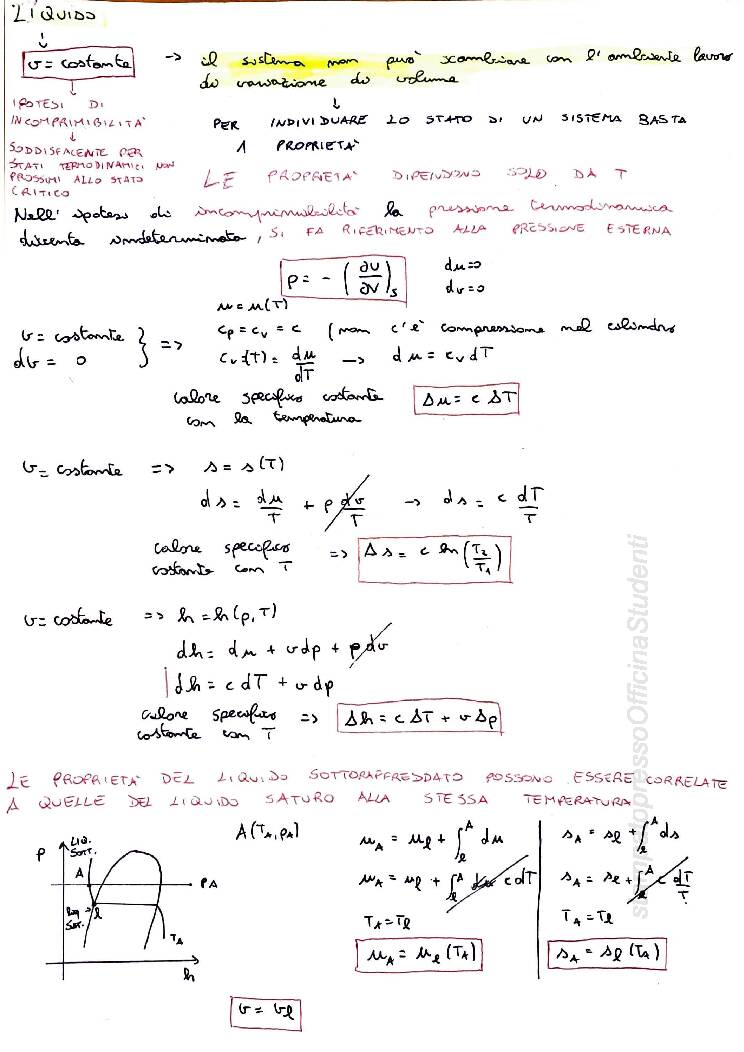 LIQUIDO
v = costante → il sistema non può scambiare con l'ambiente lavoro
di variazione di volume
IPOTESI DI
INCOMPRIMIBILITA'
SODDISFACENTE PER
STATI TERMODINAMICI NON
PROSSIMI ALLO STATO
CRITICO
PER INDIVIDUARE LO STATO DI UN SISTEMA BASTA
1 PROPRIETA'
LE PROPRIETA' DIPENDONO SOLO DA T
Nell' ipotesi di incomprimibilità la pressione termodinamica
diventa indeterminata, SI FA RIFERIMENTO ALLA PRESSIONE ESTERNA
p = - (∂U/∂V)s du=0
dv=0
u = u(T)
v = costante
dv = 0 } => cp = cv = c (non c'è compressione nel cilindro
cv(T) = du/dT → du = cv dT
calore specifico costante
con la temperatura Δu = c ΔT
v = costante => s = s(T)
ds = du/T + p dv/T → ds = c dT/T
calore specifico
costante con T => Δs = c ln(T2/T1)
v = costante => h = h(p, T)
dh = du + vdp + pdv
dh = c dT + vdp
calore specifico
costante con T => Δh = c ΔT + v Δp
LE PROPRIETA' DEL LIQUIDO SOTTORAFFREDDATO POSSONO ESSERE CORRELATE
A QUELLE DEL LIQUIDO SATURO ALLA STESSA TEMPERATURA
A(TA, pA)
P
LIQ.
SOTT.
A
PA
l
TA
h
uA = ul + ∫lA du
uA = ul + ∫lA c dT
TA = Tl
uA = ul (TA)
sA = sl + ∫lA ds
sA = sl + ∫lA c dT/T
TA = Tl
sA = sl (TA)
v = vl
stampatopressoOfficinaStudenti